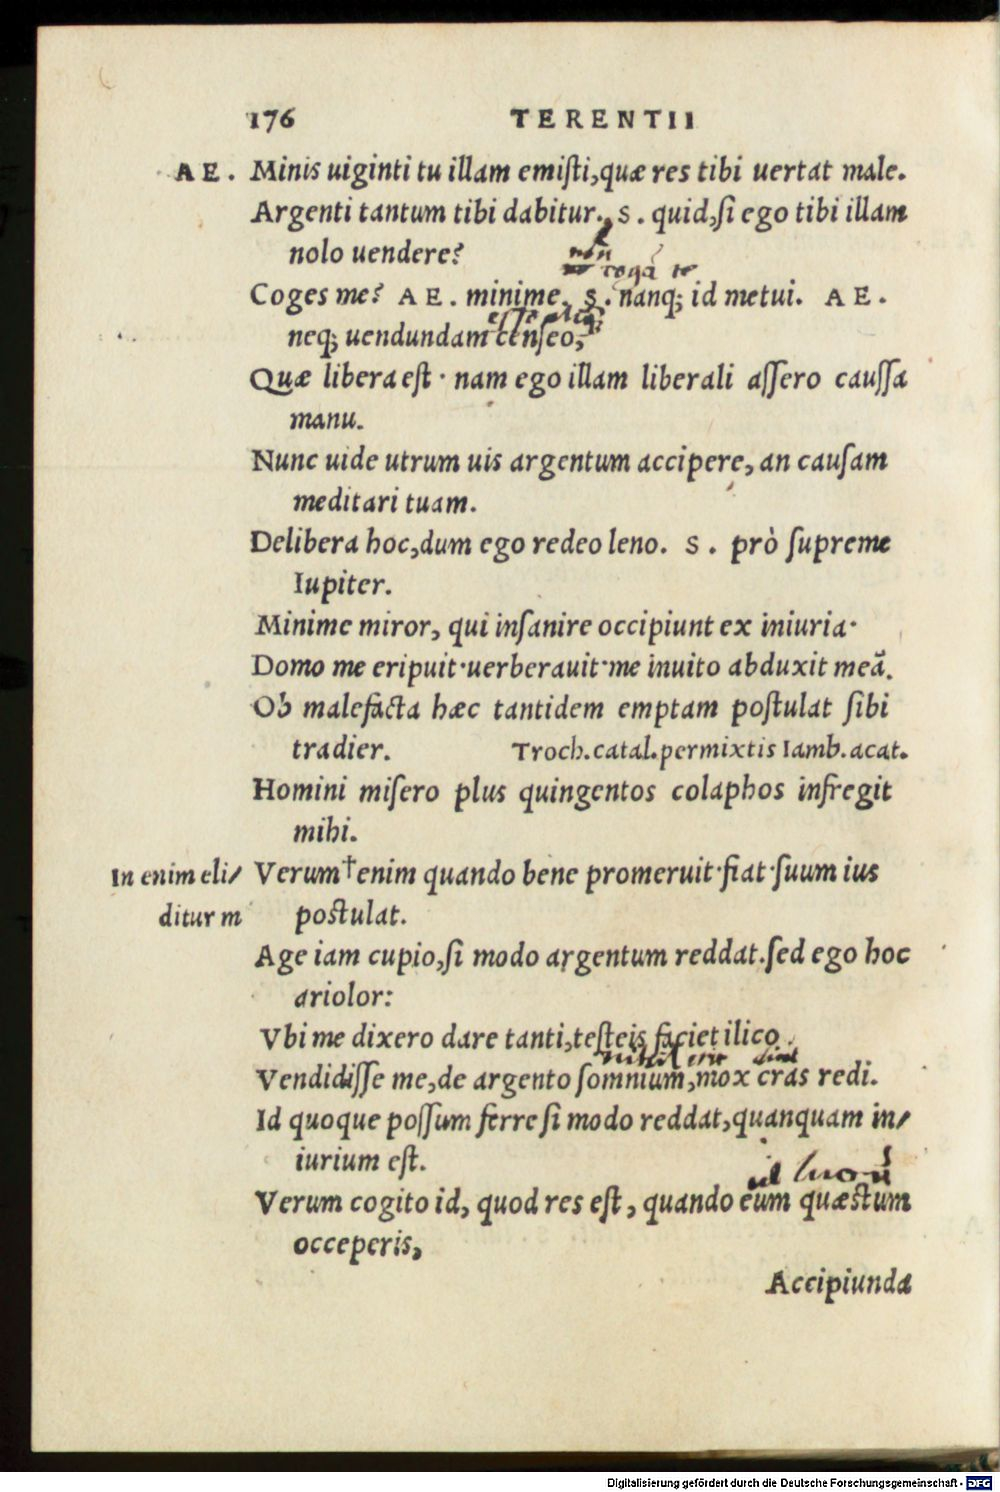 176 TERENTII
AE. Minis uiginti tu illam emiſti,quæ res tibi uertat male.
Argenti tantum tibi dabitur. S. quid,ſi ego tibi illam
nolo uendere?
non
rogā te
Coges me? AE. minime. S. nanq; id metui. AE.
neq; uendundam cenſeo,
Quæ libera eſt · nam ego illam liberali aſſero cauſſa
manu.
Nunc uide utrum uis argentum accipere, an cauſam
meditari tuam.
Delibera hoc,dum ego redeo leno. S. prò ſupreme
Iupiter.
Minime miror, qui inſanire occipiunt ex iniuria·
Domo me eripuit·uerberauit·me inuito abduxit meā.
Ob malefacta hæc tantidem emptam poſtulat ſibi
tradier. Troch.catal.permixtis Iamb.acat.
Homini miſero plus quingentos colaphos infregit
mihi.
In enim eli/ Verum†enim quando bene promeruit·fiat·ſuum ius
ditur m poſtulat.
Age iam cupio,ſi modo argentum reddat.ſed ego hoc
ariolor:
Vbi me dixero dare tanti,teſteis faciet ilico
nihil erit
Vendidiſſe me,de argento ſomnium,mox cras redi.
Id quoque poſſum ferre ſi modo reddat,quanquam in/
iurium eſt.
Verum cogito id, quod res eſt, quando eum quæſtum
occeperis,
Accipiunda
Digitalisierung gefördert durch die Deutsche Forschungsgemeinschaft - DFG